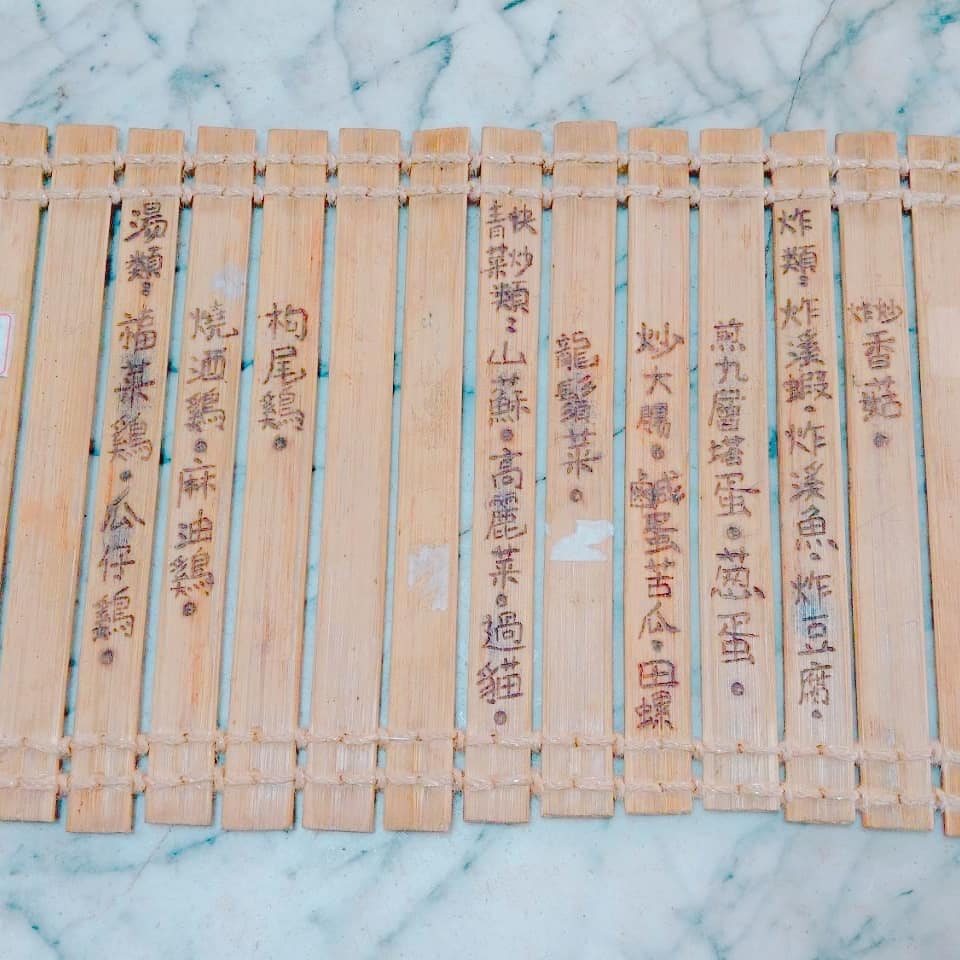 湯類：福菜鷄。瓜仔鷄。
燒酒鷄。麻油鷄。
枸尾鷄。
青菜快炒類：山蘇。高麗菜。過貓。
龍鬚菜。
炒大腸。鹹蛋苦瓜。田螺
煎九層塔蛋。葱蛋。
炸類：炸溪蝦。炸溪魚。炸豆腐。
炸炒香菇。